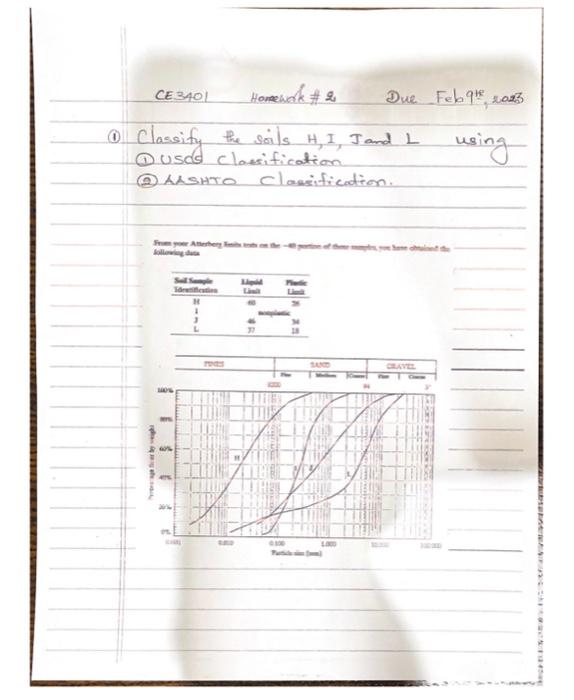 CE3401 Homework # 2 Due Feb 9th, 2023
① Classify the soils H, I, J and L using
① USCS Classification
② AASHTO Classification.
From your Atterberg limits tests on the -40 portion of these samples, you have obtained the
following data
Soil Sample Liquid Plastic
Identification Limit Limit
H 60 26
I nonplastic
J 46 34
L 37 18
FINES SAND GRAVEL
Fine Medium Coarse Fine Coarse
#200 #4 3"
100%
80%
60%
40%
20%
0%
Percentage finer by weight
H I J L
0.001 0.010 0.100 1.000 10.000 100.000
Particle size (mm)